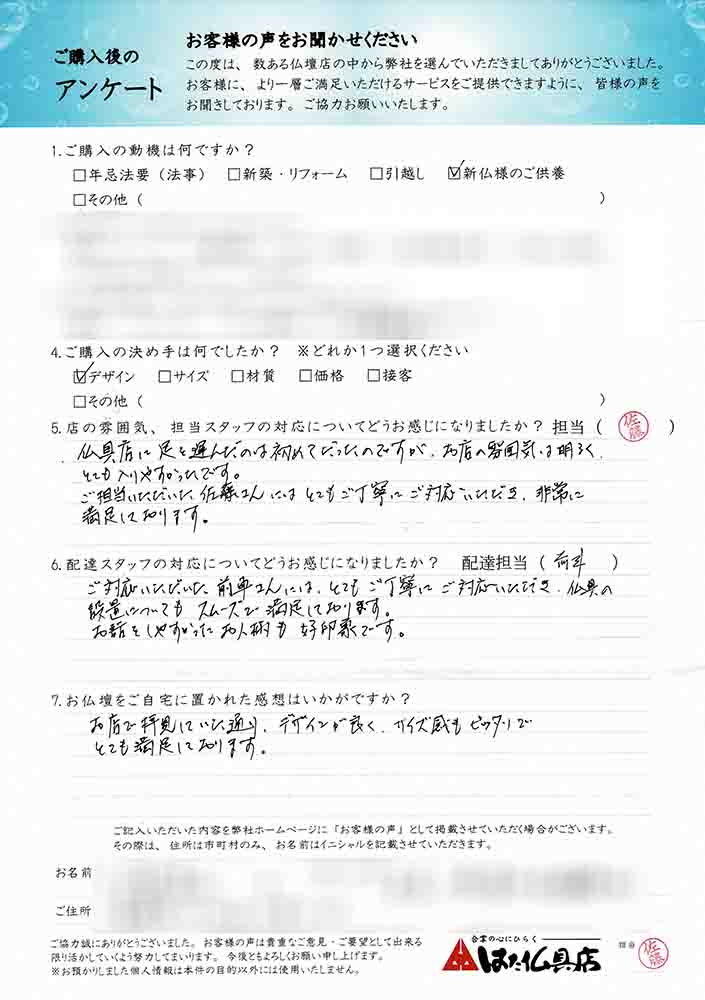 ご購入後の
アンケート
お客様の声をお聞かせください
この度は、数ある仏壇店の中から弊社を選んでいただきましてありがとうございました。
お客様に、より一層ご満足いただけるサービスをご提供できますように、皆様の声を
お聞きしております。ご協力お願いいたします。
1.ご購入の動機は何ですか？
□年忌法要（法事） □新築・リフォーム □引越し ☑新仏様のご供養
□その他（ ）
4.ご購入の決め手は何でしたか？ ※どれか1つ選択ください
☑デザイン □サイズ □材質 □価格 □接客
□その他（ ）
5.店の雰囲気、担当スタッフの対応についてどうお感じになりましたか？ 担当（ 佐藤 ）
仏具店に足を運んだのは初めてだったのですが、お店の雰囲気は明るく、
とても入りやすかったです。
ご担当いただいた佐藤さんにはとてもご丁寧にご対応いただき、非常に
満足しております。
6.配達スタッフの対応についてどうお感じになりましたか？ 配達担当（ ）
ご対応いただいた前車さんには、とてもご丁寧にご対応いただき、仏具の
設置についてもスムーズで満足しております。
お話をしやすかったお人柄も好印象です。
7.お仏壇をご自宅に置かれた感想はいかがですか？
お店で拝見していた通り、デザインが良く、サイズ感もピッタリで
とても満足しております。
ご記入いただいた内容を弊社ホームページに「お客様の声」として掲載させていただく場合がございます。
その際は、住所は市町村のみ、お名前はイニシャルを記載させていただきます。
お名前
ご住所
ご協力誠にありがとうございました。お客様の声は貴重なご意見・ご要望として出来る
限り活かしていくよう努力してまいります。今後ともよろしくお願い申し上げます。
※お預かりしました個人情報は本件の目的以外には使用いたしません。
合掌の心にひらく
はた仏具店
佐藤